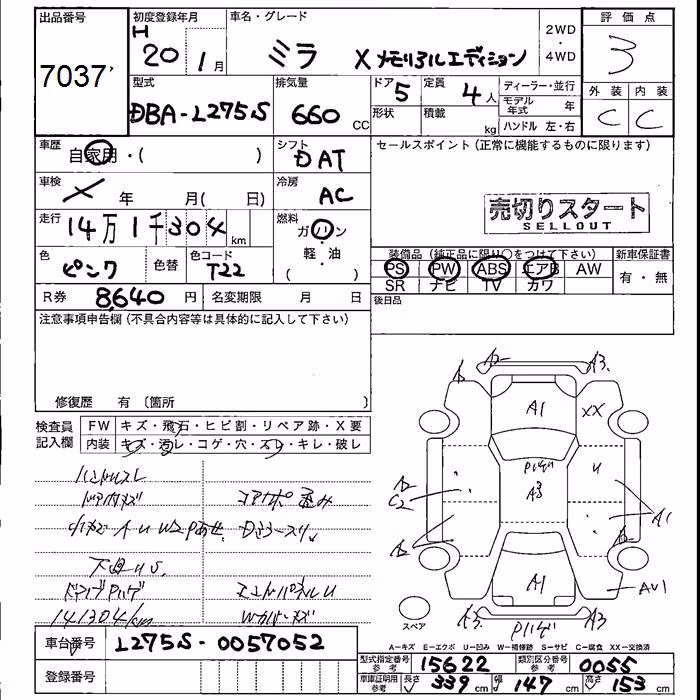 出品番号
7037
初度登録年月
H 20 1月
車名・グレード
ミラ Xメモリアルエディション
2WD・4WD
評価点
3
外装 内装
C C
型式
DBA-L275S
排気量
660 CC
ドア 5
定員 4人
形状
積載 kg
ディーラー・並行
モデル年式 年
ハンドル 左・右
車歴 自家用・( )
シフト DAT
セールスポイント(正常に機能するものに限ります)
車検 年 月( 日)
冷房 AC
売切りスタート
SELLOUT
走行 14万1千304km
燃料 ガソリン・軽・油( )
色 ピンク 色替
色コード T22
装備品(純正品に限り○をつけて下さい)
新車保証書
PS PW ABS エアB AW
SR ナビ TV カワ
有・無
R券 8,640円
名変期限 月 日
後日品
注意事項申告欄(不具合内容等は具体的に記入して下さい)
修復歴 有 〔箇所 〕
検査員記入欄
FW キズ・飛石・ヒビ割・リペア跡・X要
内装 キズ・汚レ・コゲ・穴・スレ・キレ・破レ
ハンドルスレ
ドア内キズ
コアサポ歪み
下廻りS
エンドパネルU
141304km
Wカバーキズ
A2 A3
A
A1 XX
Pハゲ U
A2
C2
A3
A1
A2
B
A1 AU1
A3 A3
Pハゲ
スペア
A-キズ E-エクボ U-凹み W-補修跡 S-サビ C-腐食 XX-交換済
車台番号 L275S-0057052
型式指定番号 参考 15622
類別区分番号 参考 0055
登録番号
車庫証明用 参考 長さ 339cm 幅 147cm 高さ 153cm